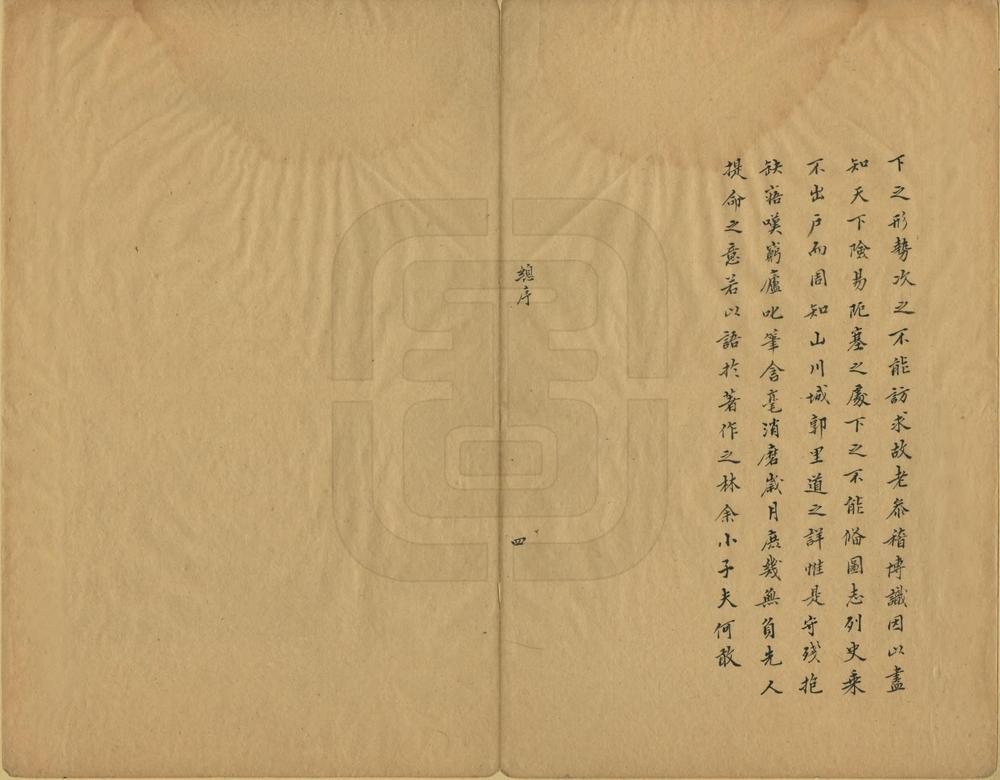 下之形勢次之不能訪求故老叅稽博識因以盡
知天下險易阨塞之處下之不能偹圖志列史乘
不出戸而周知山川城郭里道之詳惟是守殘抱
缺寤嘆窮廬吮筆含毫消磨歲月庶幾無負先人
提命之意若以語於著作之林余小子夫何敢
總序
四